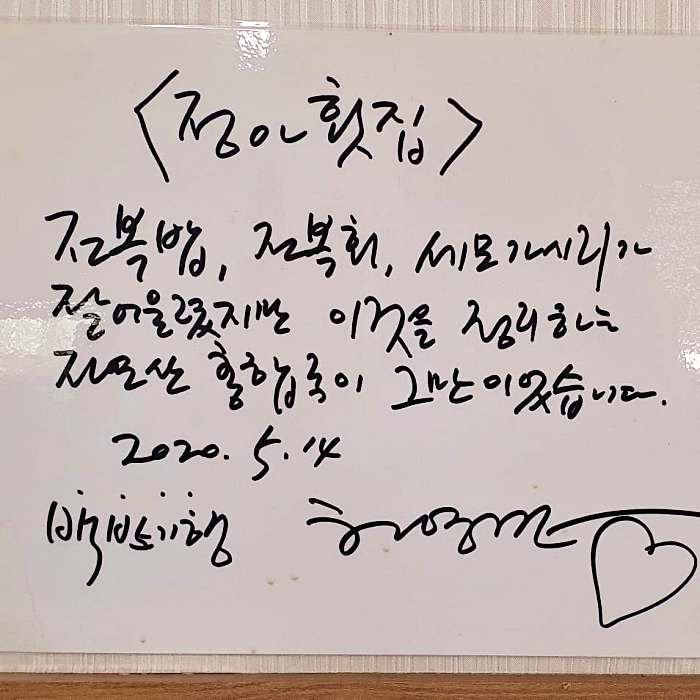 <정아횟집>
전복밥, 전복회, 세모가시리가
잘 어울렸지만 이것을 정리하는
자연산 홍합국이 그만이었습니다.
2020. 5. 14
백반기행 허영만